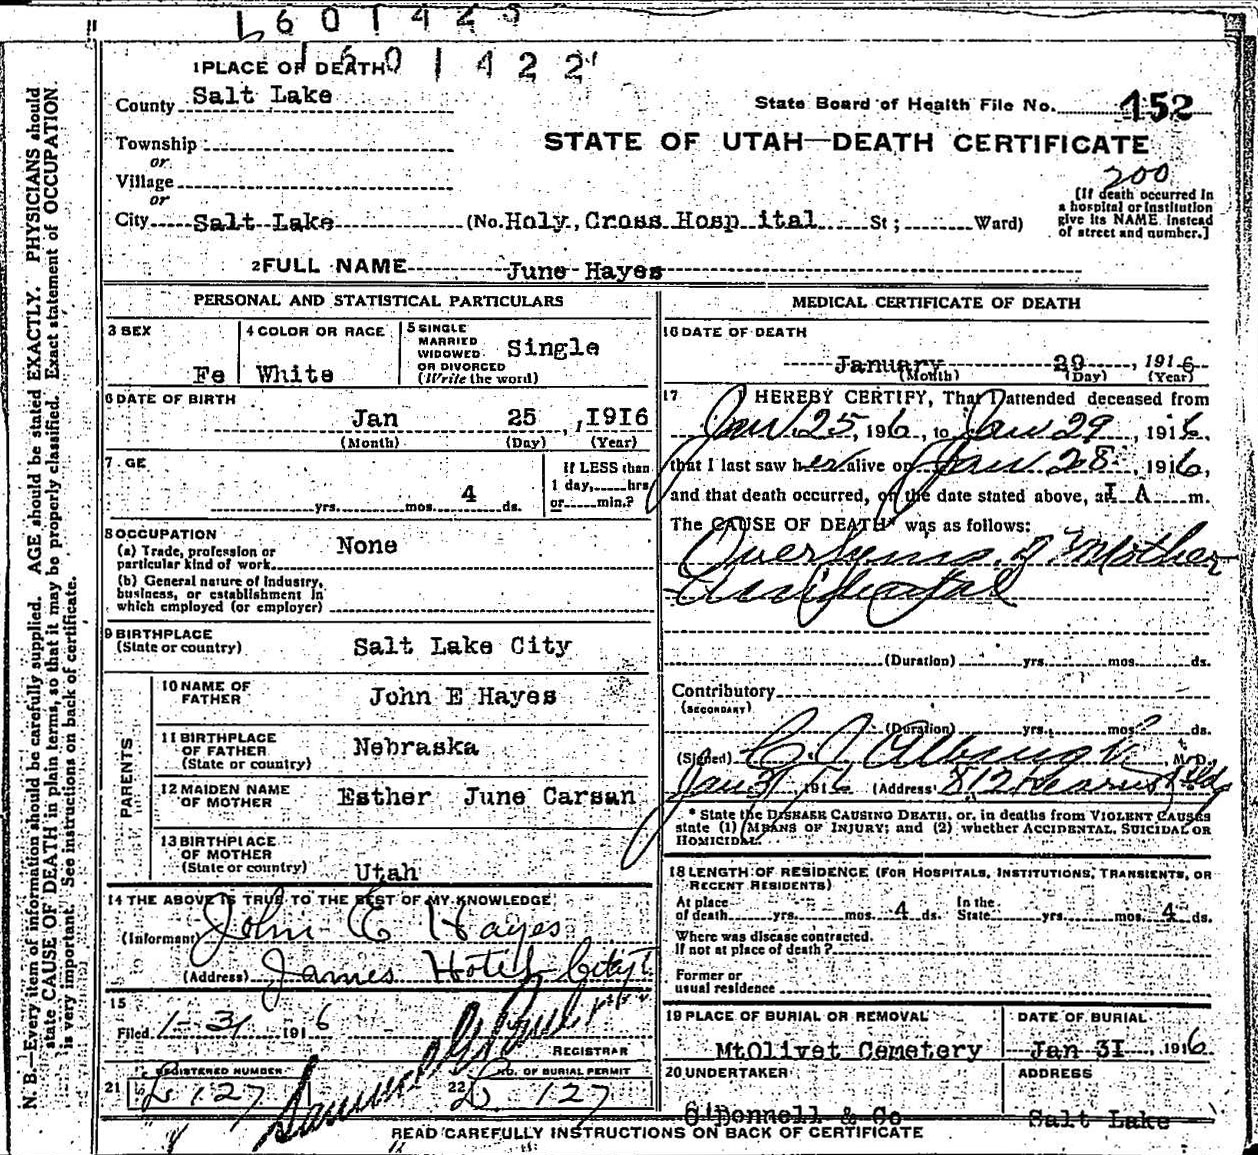 1601422
1 PLACE OF DEATH
County Salt Lake
State Board of Health File No. 152
STATE OF UTAH—DEATH CERTIFICATE
Township
or
Village
or
200
[If death occurred in
a hospital or institution
give its NAME instead
of street and number.]
City Salt Lake (No. Holy Cross Hosp ital St; Ward)
2 FULL NAME June Hayes
PERSONAL AND STATISTICAL PARTICULARS
3 SEX
Fe
4 COLOR OR RACE
White
5 SINGLE
MARRIED
WIDOWED
OR DIVORCED
(Write the word)
Single
6 DATE OF BIRTH
Jan 25, 1916
(Month) (Day) (Year)
7 GE
yrs. mos. 4 ds.
If LESS than
1 day, hrs
or min.?
8 OCCUPATION
(a) Trade, profession or
particular kind of work
None
(b) General nature of industry,
business, or establishment in
which employed (or employer)
9 BIRTHPLACE
(State or country)
Salt Lake City
PARENTS
10 NAME OF
FATHER
John E Hayes
11 BIRTHPLACE
OF FATHER
(State or country)
Nebraska
12 MAIDEN NAME
OF MOTHER
Esther June Carsan
13 BIRTHPLACE
OF MOTHER
(State or country)
Utah
14 THE ABOVE IS TRUE TO THE BEST OF MY KNOWLEDGE
(Informant) John E Hayes
(Address) James Hotel City
15
Filed 1-31 1916
REGISTRAR
REGISTERED NUMBER
21 127
NO. OF BURIAL PERMIT
22 127
MEDICAL CERTIFICATE OF DEATH
16 DATE OF DEATH
January 29, 1916
(Month) (Day) (Year)
17 I HEREBY CERTIFY, That I attended deceased from
Jan. 25, 1916, to Jan 29, 1916,
that I last saw her alive on Jan. 28, 1916,
and that death occurred, on the date stated above, at I A m.
The CAUSE OF DEATH* was as follows:
Mother
Accidental
(Duration) yrs. mos. ds.
Contributory
(SECONDARY)
(Duration) yrs. mos. ds.
(Signed) M.D.
Jan 31, 1916 (Address) 812 Kearns Bldg
* State the DISEASE CAUSING DEATH, or, in deaths from VIOLENT CAUSES
state (1) MEANS OF INJURY; and (2) whether ACCIDENTAL, SUICIDAL OR
HOMICIDAL.
18 LENGTH OF RESIDENCE (FOR HOSPITALS, INSTITUTIONS, TRANSIENTS, OR
RECENT RESIDENTS)
At place
of death yrs. mos. 4 ds.
In the
State yrs. mos. 4 ds.
Where was disease contracted.
If not at place of death?
Former or
usual residence
19 PLACE OF BURIAL OR REMOVAL
MtOlivet Cemetery
DATE OF BURIAL
Jan 31, 1916
20 UNDERTAKER
O'Donnell & Co
ADDRESS
Salt Lake
READ CAREFULLY INSTRUCTIONS ON BACK OF CERTIFICATE
N. B.—Every item of information should be carefully supplied. AGE should be stated EXACTLY. PHYSICIANS should
state CAUSE OF DEATH in plain terms, so that it may be properly classified. Exact statement of OCCUPATION
is very important. See instructions on back of certificate.